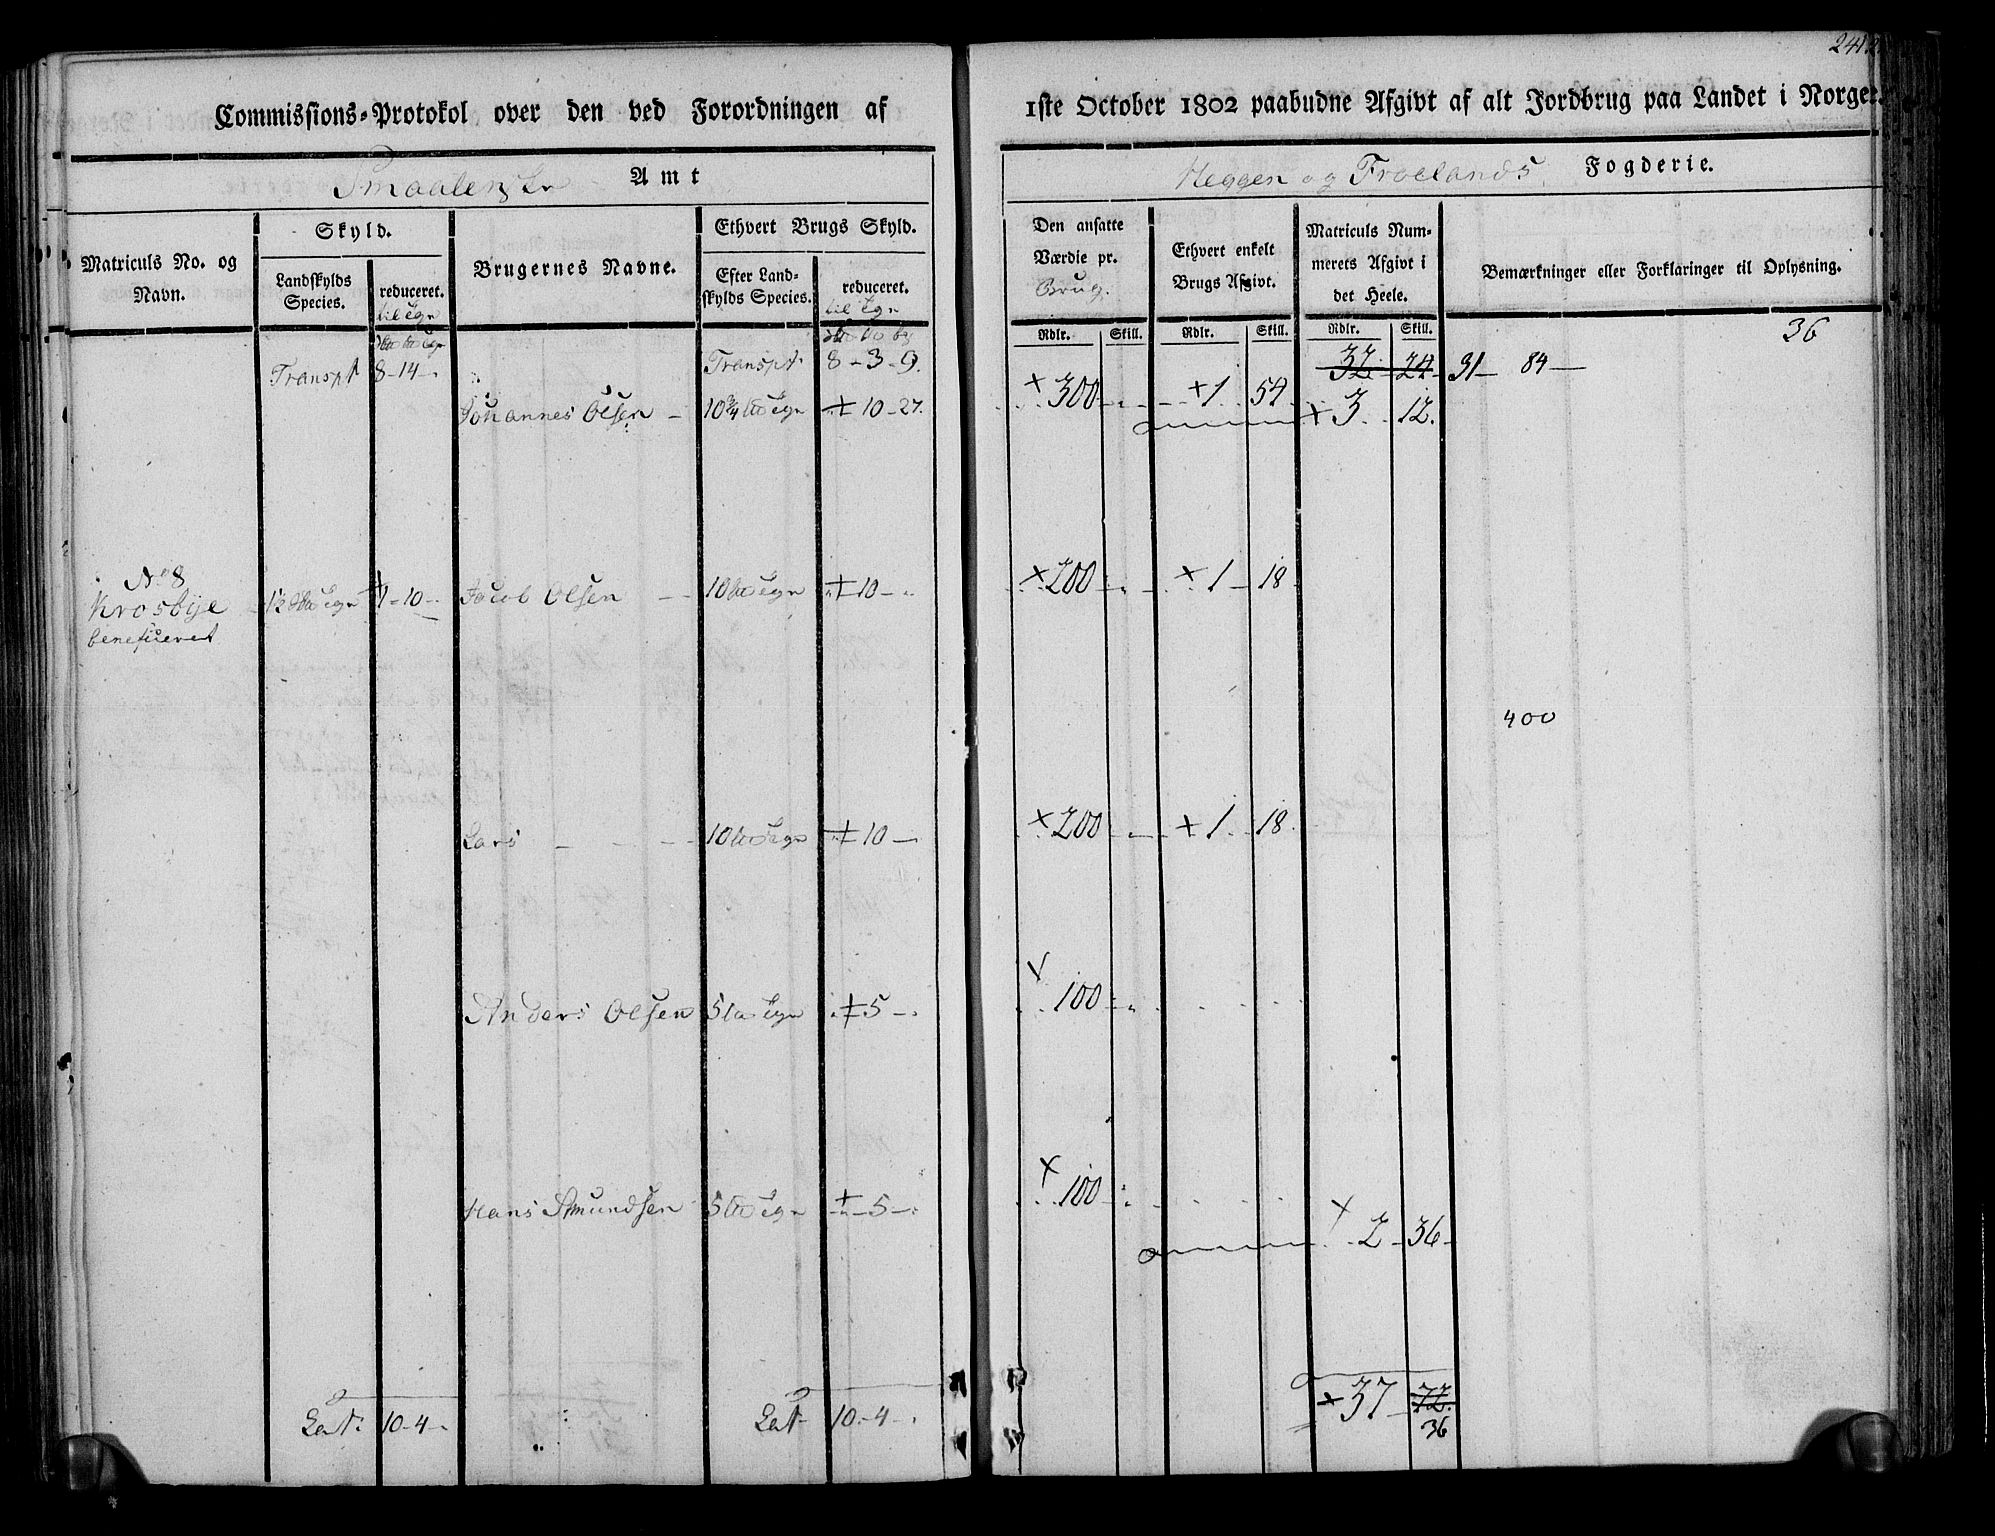 241.
Commissions-Protokol over den ved Forordningen af 1ste October 1802 paabudne Afgivt af alt Jordbrug paa Landet i Norge.
Smaalenske Amt
Heggen og Froelands Fogderie.
Matriculs No. og Navn.
Skyld.
Landskylds Species.
reduceret.
Brugernes Navne.
Ethvert Brugs Skyld.
Efter Landskylds Species.
reduceret.
Den ansatte Værdie pr. Brug.
Rdlr. Skill.
Ethvert enkelt Brugs Afgivt.
Rdlr. Skill.
Matriculs Nummerets Afgivt i det Heele.
Rdlr. Skill.
Bemærkninger eller Forklaringer til Oplysning.
36
Transpt 8-14-. Transpt 8-3-9. 32 24 31- 84-
Johannes Olsen 10¾ 10-27. 300 1 54
3 12.
No 8
Krosbye
beneficeret
1-10- Jacob Olsen 10 10- 200 1 18
400
Lars 10 10- 200 1 18
Anders Olsen 5 5- 100
Hans Amundsen 5 5- 100
2 36
Lat. 10-4- Lat 10-4- 37 72
36